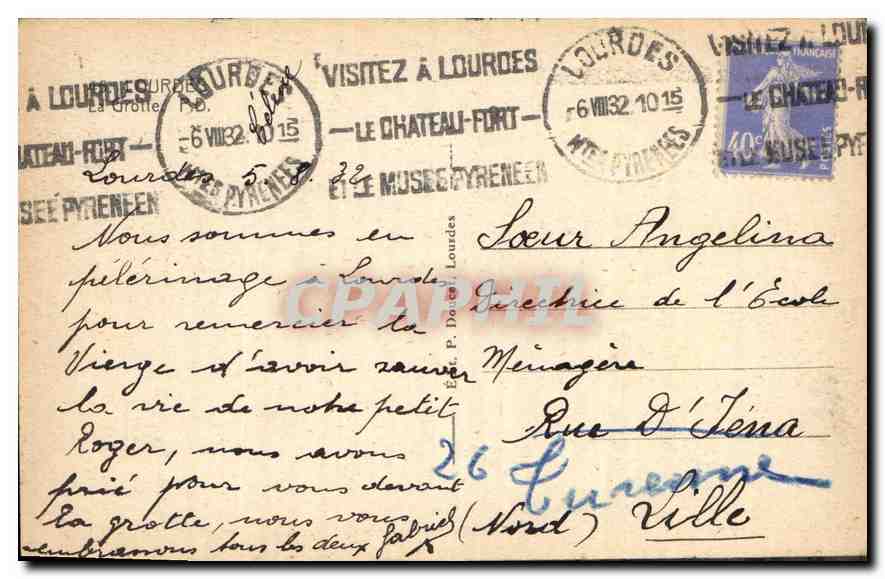 LOURDES
La Grotte P.D.
LOURDES
-6 VIII 32. 10 15
Htes PYRENEES
Eglise
VISITEZ À LOURDES
—LE CHATEAU-FORT—
ET LE MUSEE PYRENEEN
LOURDES
-6 VIII 32. 10 15
Htes PYRENEES
VISITEZ À LOUR
LE CHATEAU-F
ET LE MUSEE PY
À LOURDES
HATEAU-FORT-
SEE PYRENEEN
FRANÇAISE
40c
POSTES
Lourdes 5. 8. 32
Nous sommes en
pélérinage à Lourdes
pour remercier la
Vierge d'avoir sauver
la vie de notre petit
Roger, nous avons
prié pour vous devant
la grotte, nous vous
embrassons tous les deux Gabriel
Édit. P. Doucet, Lourdes
Sœur Angelina
Directrice de l'École
Ménagère
Rue D'Iéna
26 Turenne
(Nord) Lille
CPAPHIL